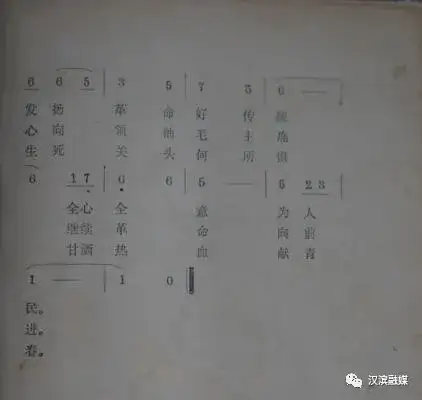 6 6 5 3 5 7 5 6 —
发扬 革 命好 传统
心向 领 袖毛 主席
生死 关 头何 所惧
6 1 7 6 6 5 — 6 2 3
全心 全 意 为人
继续 革 命 向前
甘洒 热 血 献青
1 — 1 0
民。
进。
春。
汉滨融媒